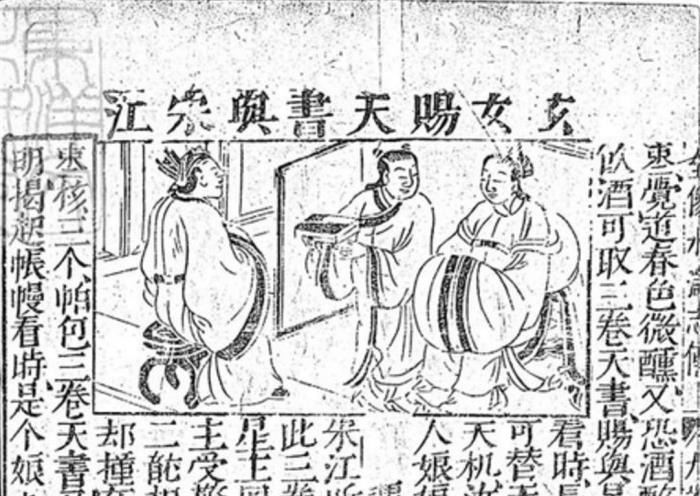 玄女賜天書與宋江
東覺道春色微醺又恐酒
酒可取三卷天書賜與
看時
可替天
天机
人娘
宋江
此三卷
星主
主受
二能
却撞
東核三个帕包三卷天書
明揭起帳幔看時是个娘